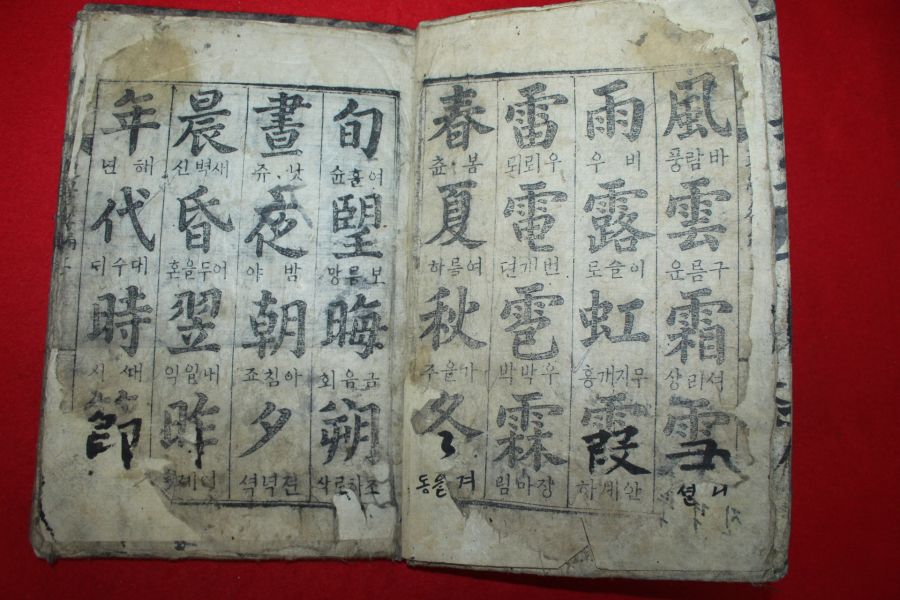 風 바람풍
雲 구름운
霜 셔리상
雪 셜
雨 비우
露 이슬로
虹 무지게홍
霞 안개하
雷 우뢰뢰
電 번개뎐
雹 우박박
霖 장마림
春 봄츈
夏 여름하
秋 가을주
冬 겨을동
旬
望 보름망
晦 금음회
朔
晝 낫쥬
夜 밤야
朝 아침죠
夕 젼녁셕
晨 새벽신
昏 어두을혼
翌 내일익
昨
年 해년
代 대수
時 시
節